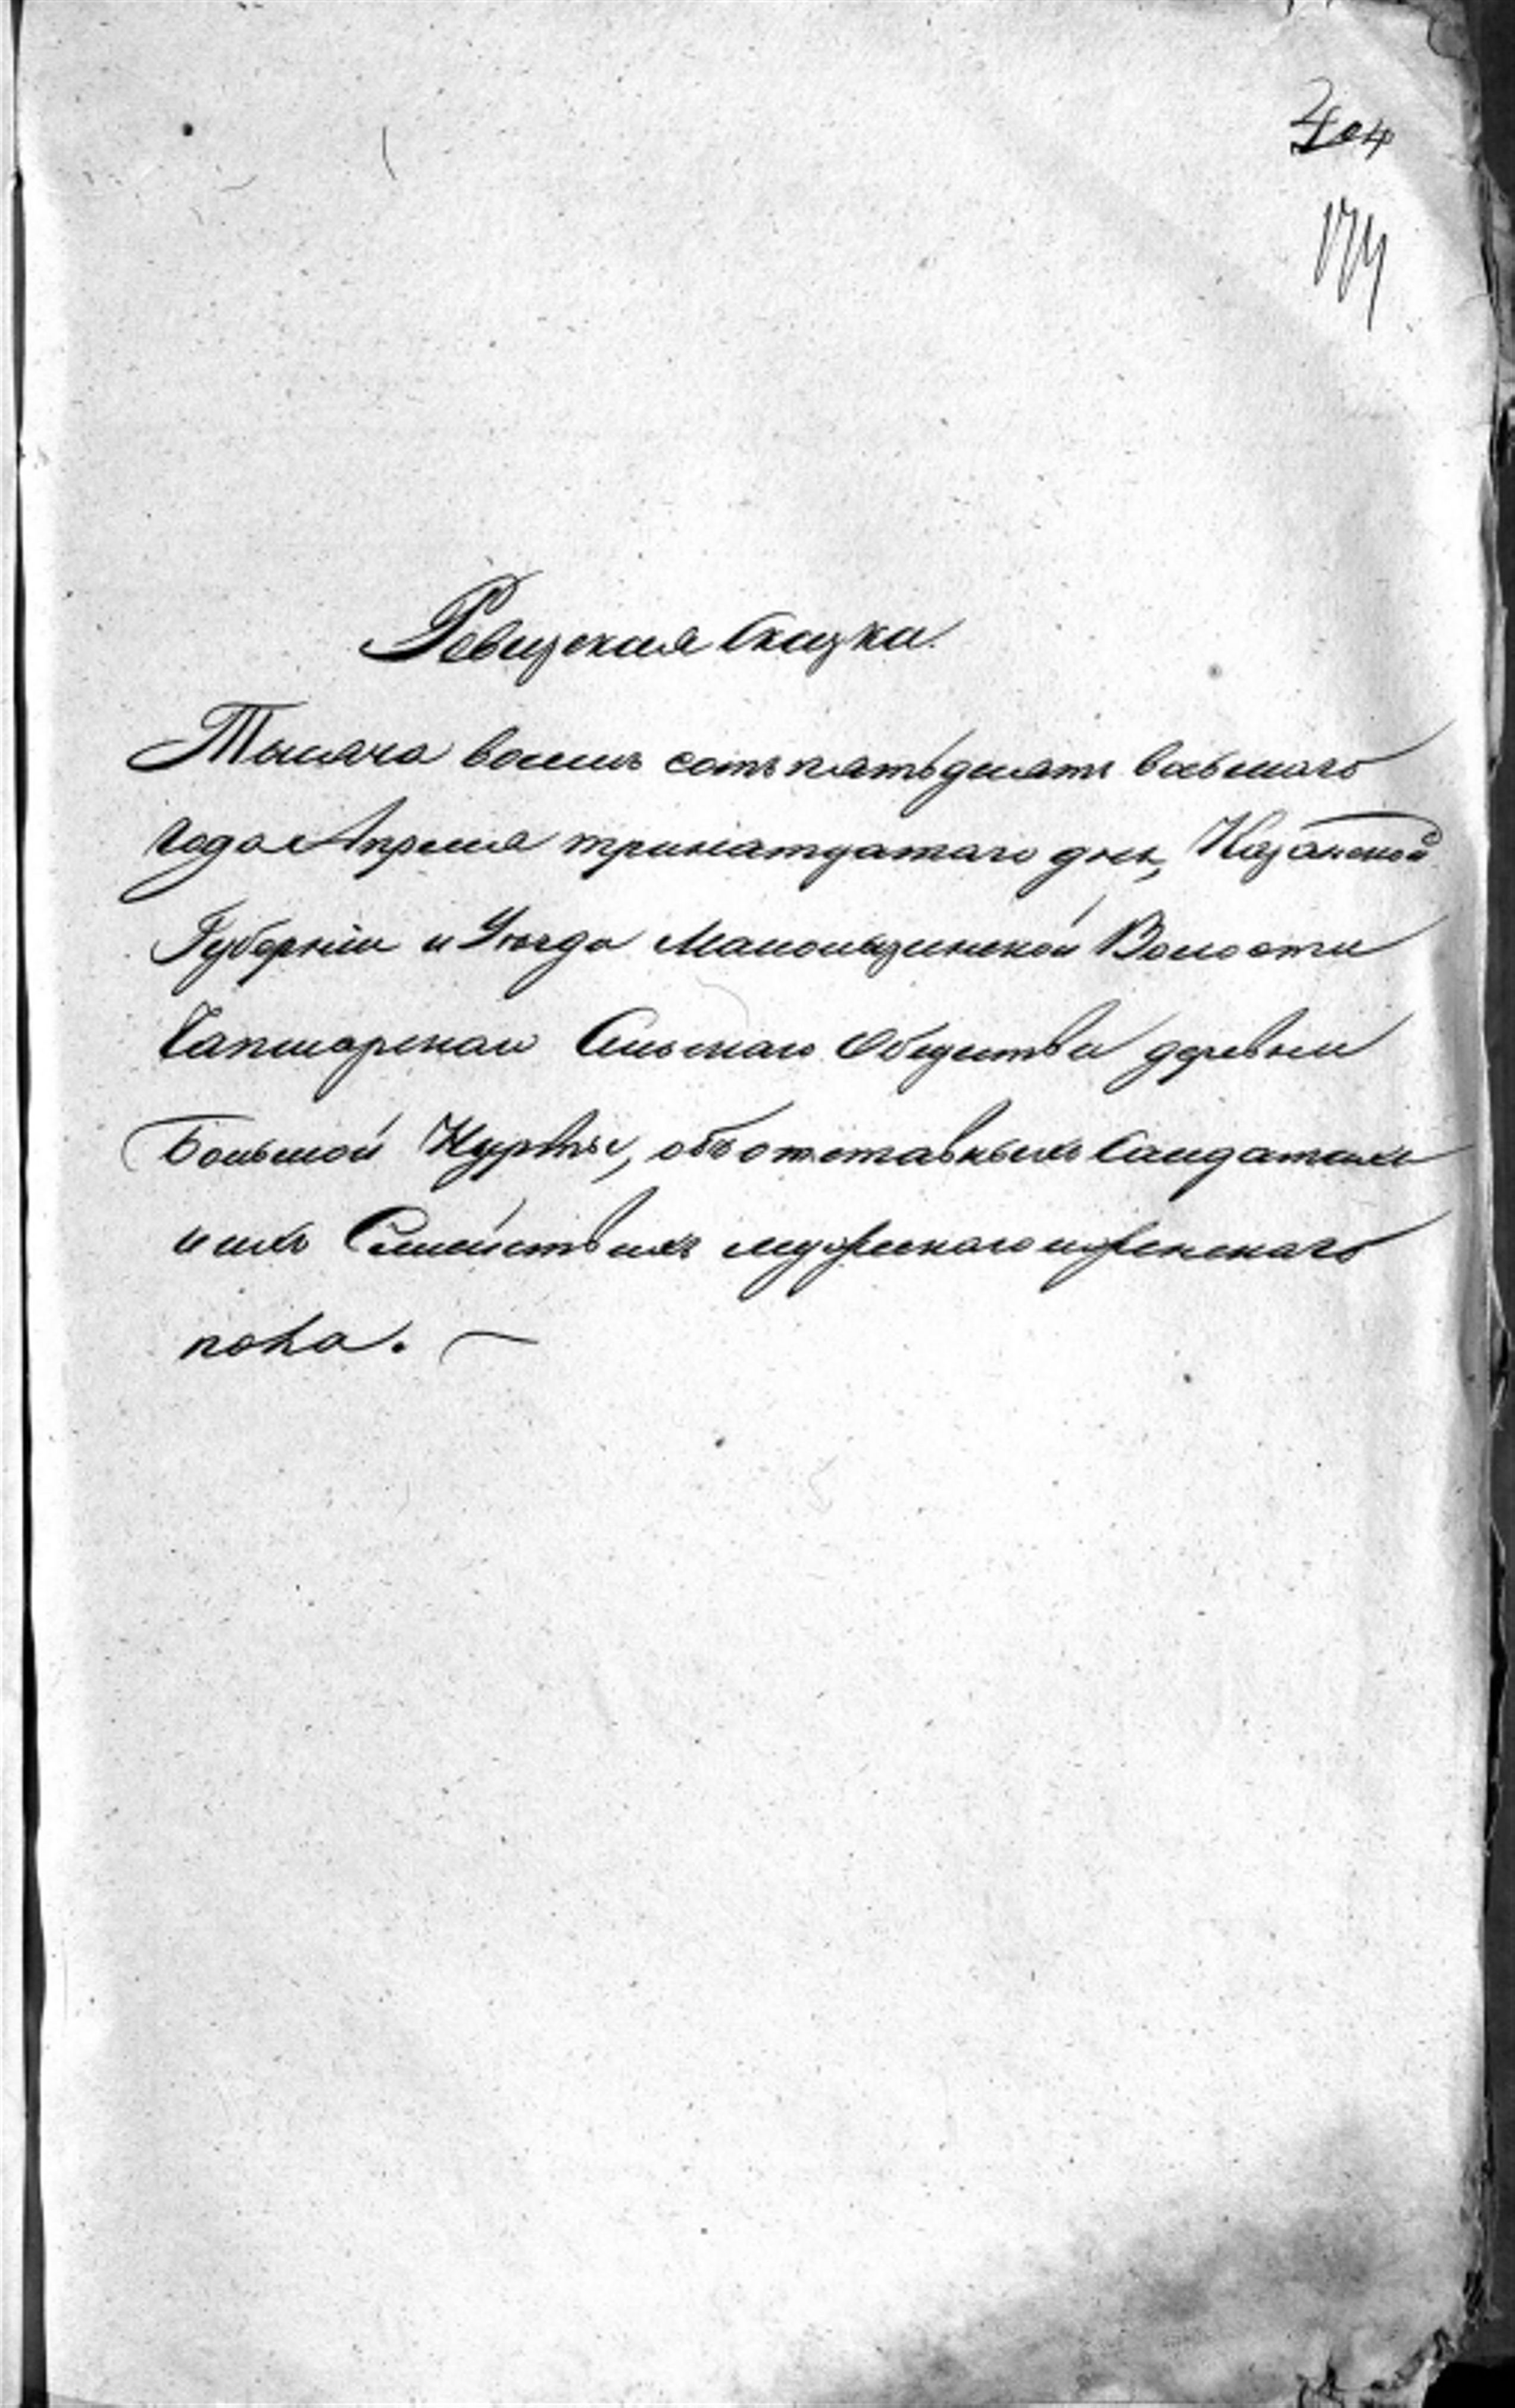 404
174
Ревизская Сказка.
Тысяча восемь сотъ пятьдесятъ восьмаго
года Апреля тринатцатаго дня, Казанской
Губерніи и Уѣзда Волости
Сельскаго Общества деревни
Большой объ отставныхъ Солдатахъ
и ихъ Семействахъ мужескаго и женскаго
пола. —